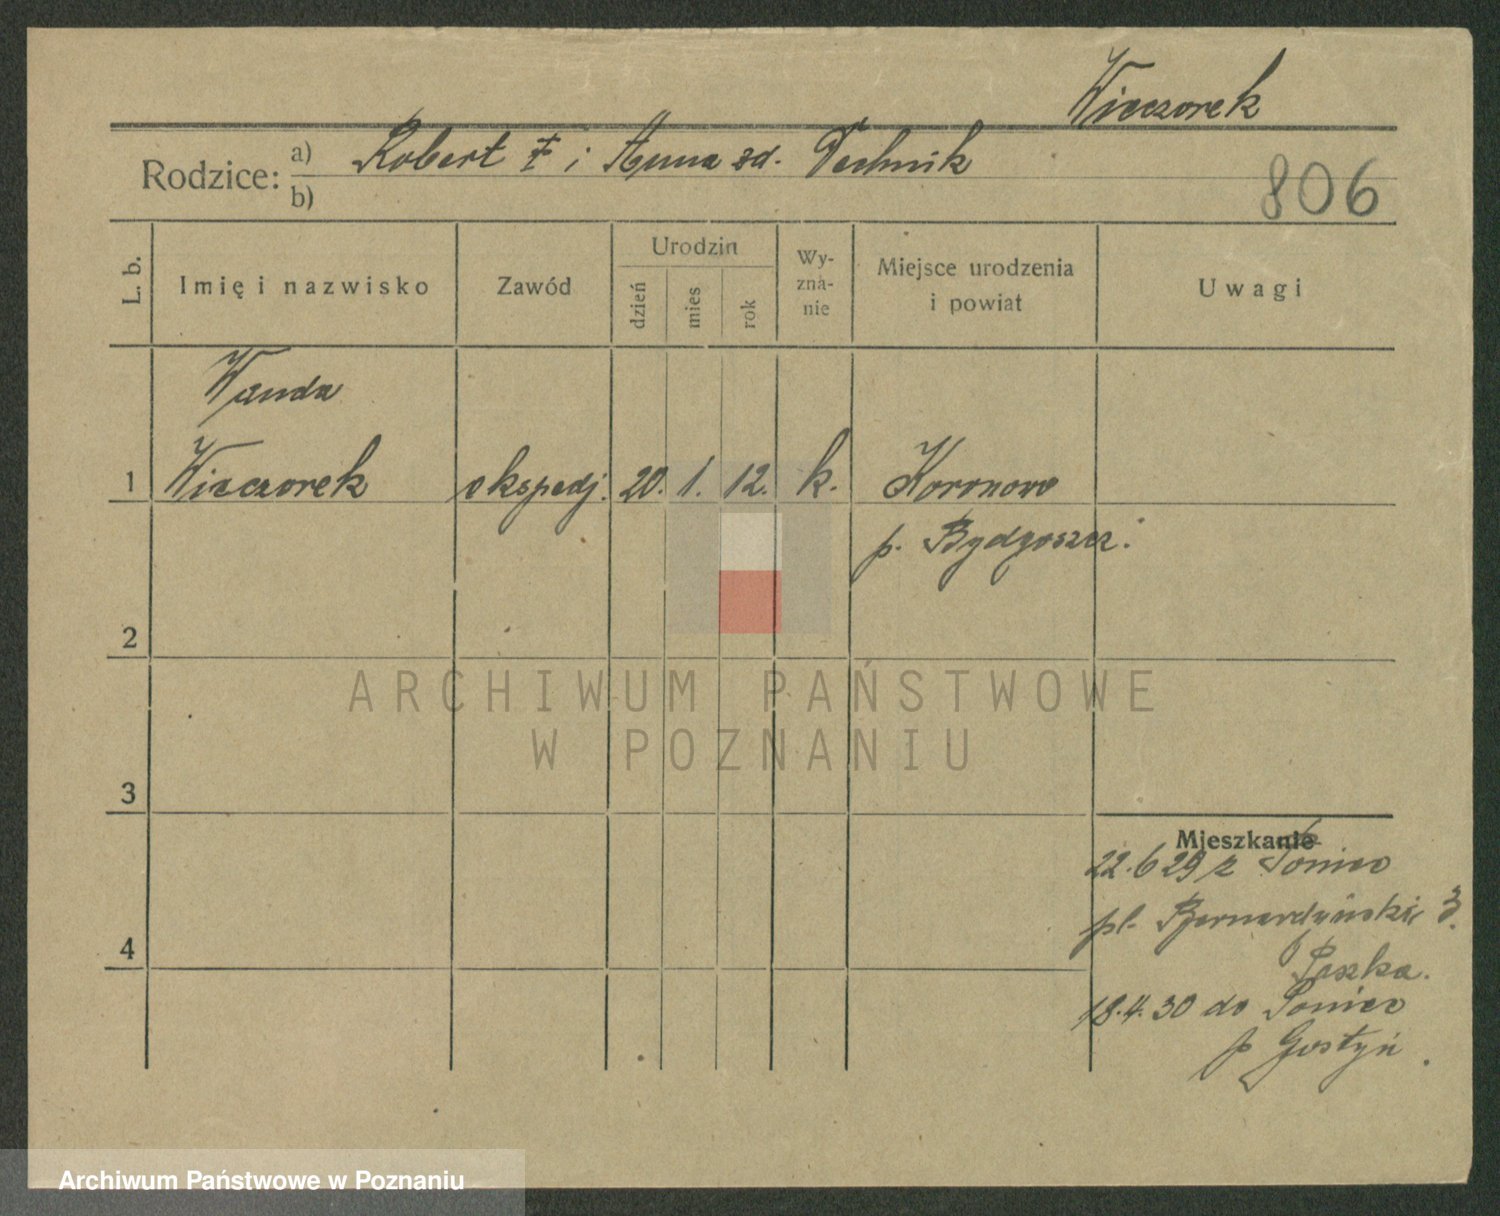 Wieczorek
Rodzice: a) Robert ‡ i Anna zd. Technik
b)
806
L. b.
Imię i nazwisko
Zawód
Urodzin
dzień
mies
rok
Wy-
zna-
nie
Miejsce urodzenia
i powiat
Uwagi
Wanda
1 Wieczorek ekspedj. 20. 1. 12. k. Koronowo
p. Bydgoszcz.
2
ARCHIWUM PAŃSTWOWE
W POZNANIU
3
Mieszkanie
22.6 29 z Poniec
pl. Bernardyński 3.
18.4.30 do Poniec
p Gostyń.
4
Archiwum Państwowe w Poznaniu